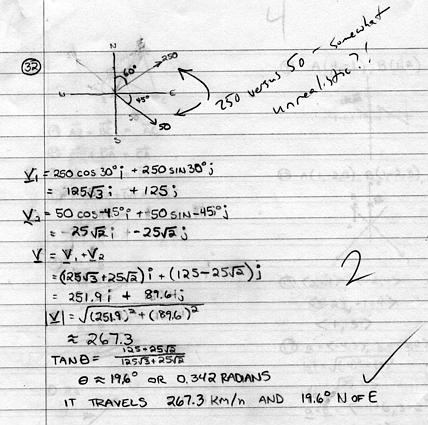 4
32
N
60°
250
W
E
45°
S
50
250 versus 50 - somewhat
unrealistic?!
V₁ = 250 cos 30° i + 250 sin 30° j
= 125√3 i + 125 j
V₂ = 50 cos -45° i + 50 sin -45° j
= 25√2 i + -25√2 j
V = V₁ + V₂
= (125√3 + 25√2) i + (125 - 25√2) j
= 251.9 i + 89.6 j
|V| = √(251.9)² + (89.6)²
≈ 267.3
TAN θ = 125-25√2 / 125√3+25√2
θ ≈ 19.6° OR 0.342 RADIANS
IT TRAVELS 267.3 km/h AND 19.6° N OF E
2